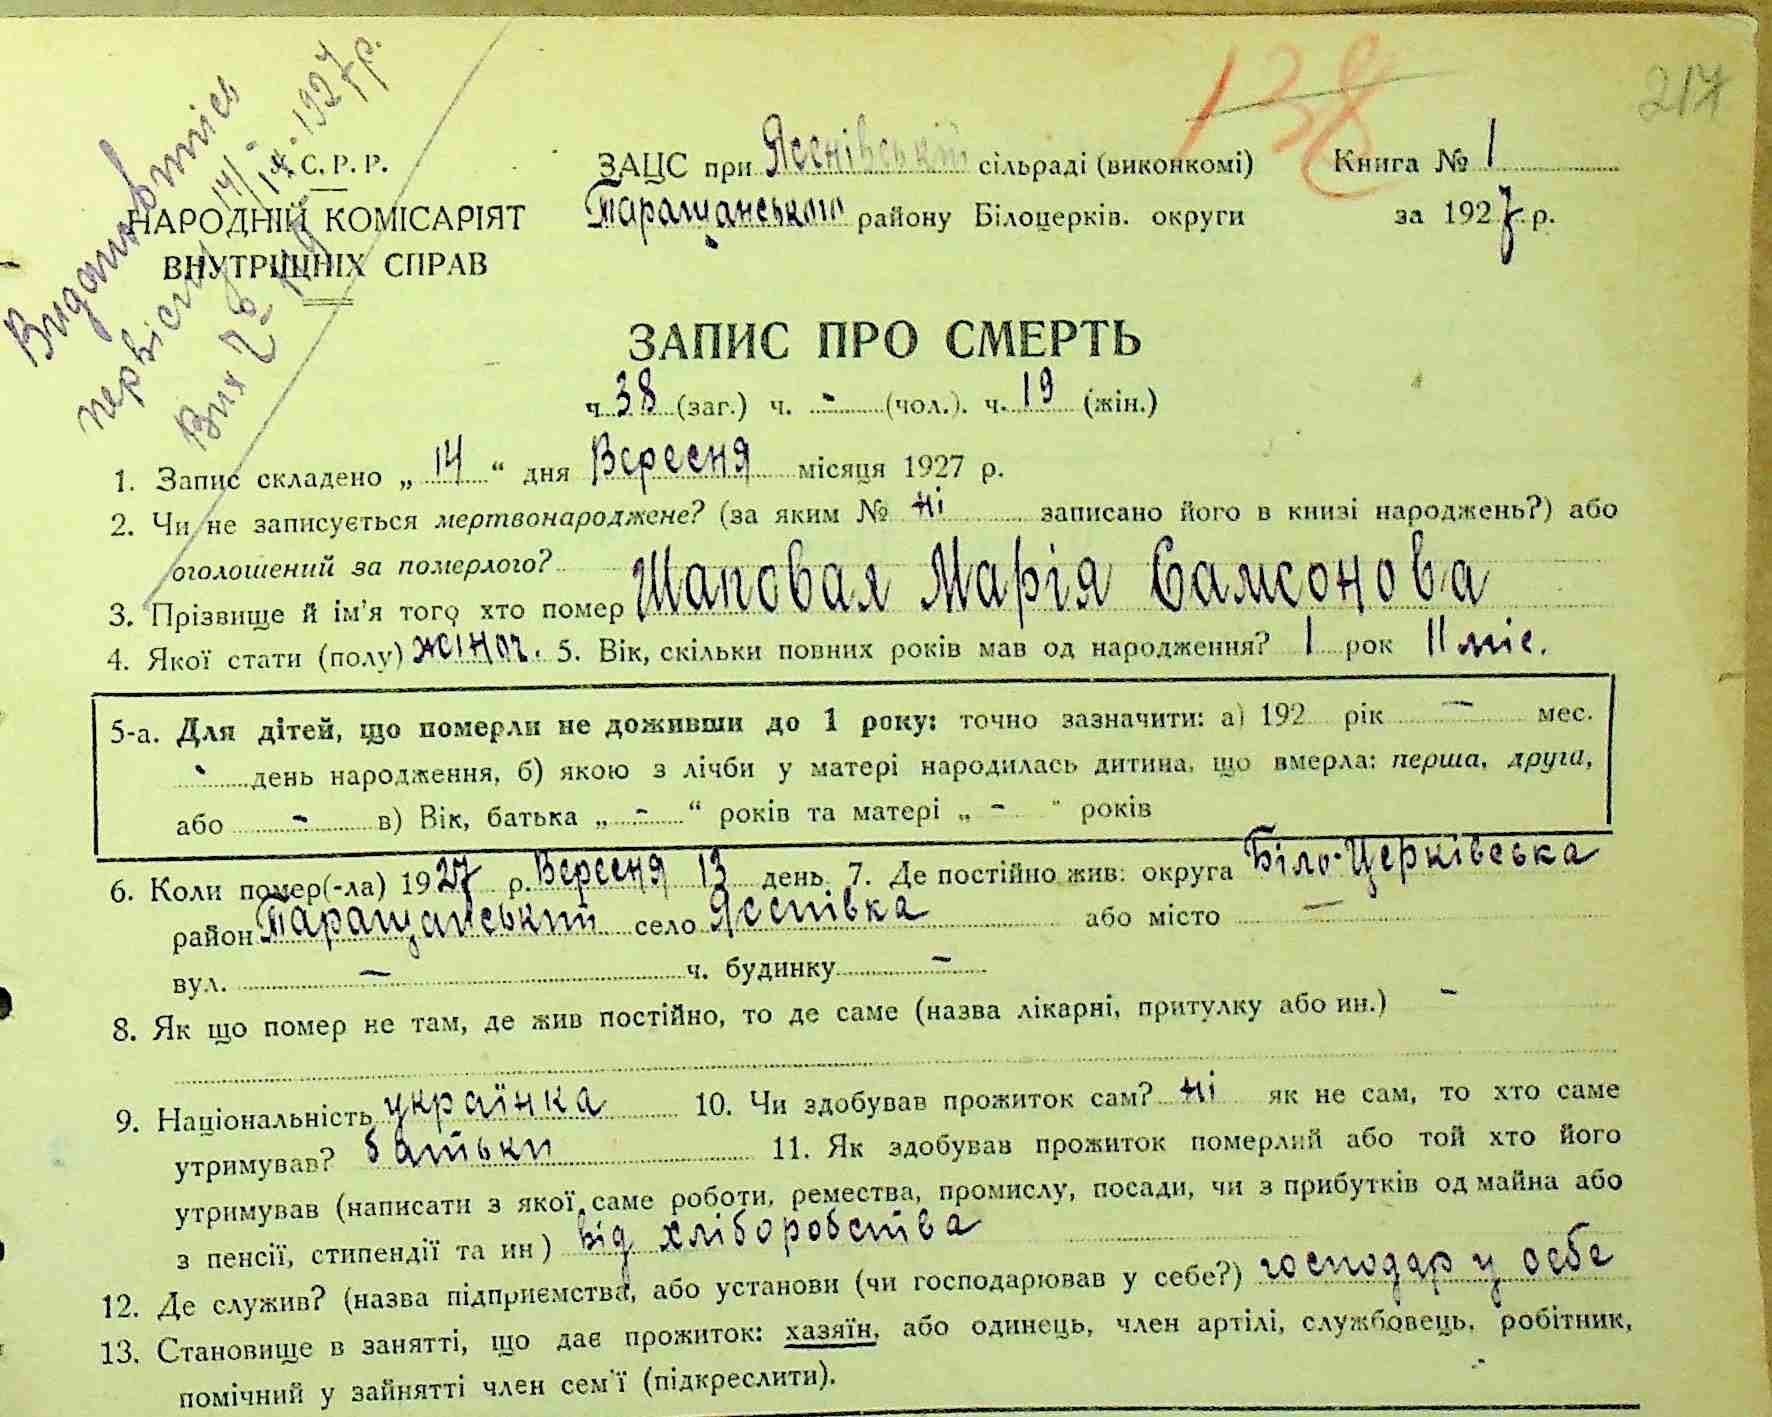 138
217
У.С.Р.Р.
НАРОДНІЙ КОМІСАРІЯТ
ВНУТРІШНІХ СПРАВ
Вих № 119 14/IX-1927 р.
ЗАЦС при Яснівській сільраді (виконкомі)
Таращанського району Білоцерків. округи
Книга № 1
за 1927 р.
ЗАПИС ПРО СМЕРТЬ
ч. 38 (заг.) ч. - (чол.). ч. 19 (жін.)
1. Запис складено „ 14 “ дня Вересня місяця 1927 р.
2. Чи не записується мертвонароджене? (за яким № ні записано його в книзі народжень?) або
оголошений за померлого?
3. Прізвище й ім'я того хто помер Шаповал Марія Самсонова
4. Якої стати (полу) жіноч. 5. Вік, скільки повних років мав од народження? 1 рок 11 міс.
5-а. Для дітей, що померли не доживши до 1 року: точно зазначити: а) 192 рік — мес.
- день народження, б) якою з лічби у матері народилась дитина, що вмерла: перша, друга,
або - в) Вік, батька „ - “ років та матері „ - “ років
6. Коли помер(-ла) 1927 р. Вересня 13 день. 7. Де постійно жив: округа Біло-Церківська
район Таращанський село Яснівка або місто —
вул. — ч. будинку —
8. Як що помер не там, де жив постійно, то де саме (назва лікарні, притулку або ин.) -
9. Національність українка 10. Чи здобував прожиток сам? ні як не сам, то хто саме
утримував? батьки 11. Як здобував прожиток померлий або той хто його
утримував (написати з якої саме роботи, ремества, промислу, посади, чи з прибутків од майна або
з пенсії, стипендії та ин) від хліборобства
12. Де служив? (назва підприємства, або установи (чи господарював у себе?) господар у себе
13. Становище в занятті, що дає прожиток: хазяїн, або одинець, член артілі, службовець, робітник,
помічний у зайнятті член сем'ї (підкреслити).